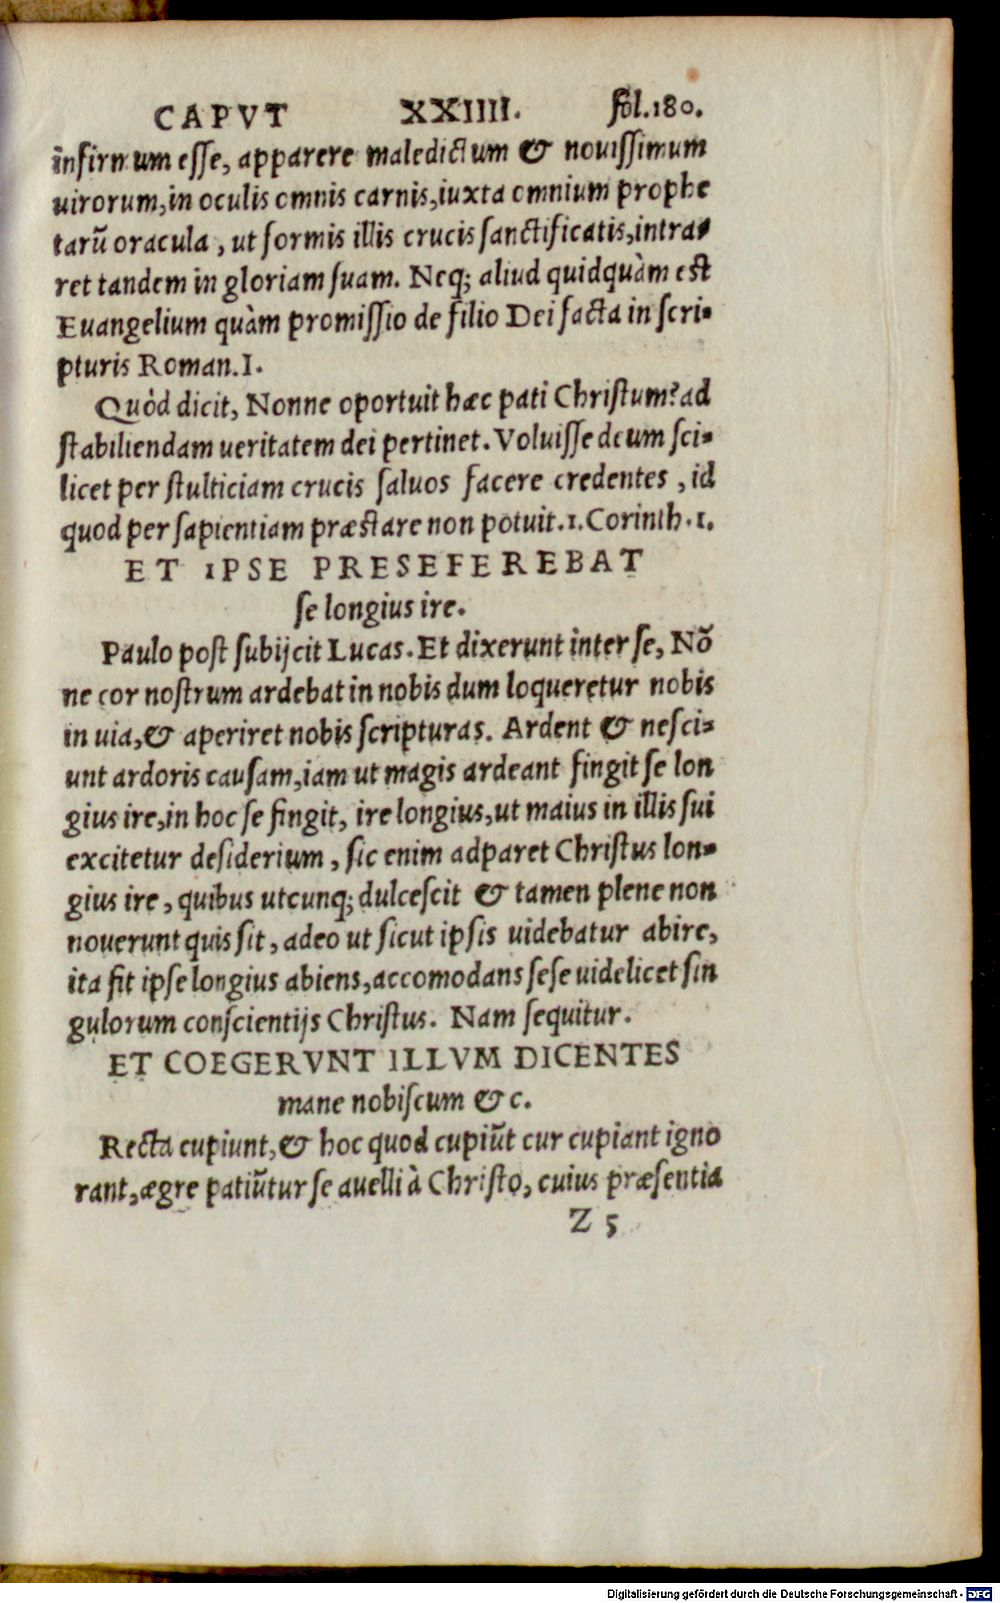 CAPVT XXIIII. fol.180.
infirmum esse, apparere maledictum & nouissimum
uirorum, in oculis omnis carnis, iuxta omnium prophe
tarũ oracula, ut formis illis crucis sanctificatis, intra-
ret tandem in gloriam suam. Neq; aliud quidquàm est
Euangelium quàm promissio de filio Dei facta in scri-
pturis Roman.I.
Quòd dicit, Nonne oportuit hæc pati Christum? ad
stabiliendam ueritatem dei pertinet. Voluisse deum sci-
licet per stulticiam crucis saluos facere credentes, id
quod per sapientiam præstare non potuit.1.Corinth.1.
ET IPSE PRESEFEREBAT
se longius ire.
Paulo post subijcit Lucas. Et dixerunt inter se, Nõ
ne cor nostrum ardebat in nobis dum loqueretur nobis
in uia, & aperiret nobis scripturas. Ardent & nesci-
unt ardoris causam, iam ut magis ardeant fingit se lon
gius ire, in hoc se fingit, ire longius, ut maius in illis sui
excitetur desiderium, sic enim adparet Christus lon-
gius ire, quibus utcunq; dulcescit & tamen plene non
nouerunt quis sit, adeo ut sicut ipsis uidebatur abire,
ita fit ipse longius abiens, accomodans sese uidelicet sin
gulorum conscientijs Christus. Nam sequitur.
ET COEGERVNT ILLVM DICENTES
mane nobiscum & c.
Recta cupiunt, & hoc quod cupiũt cur cupiant igno
rant, ægre patiũtur se auelli à Christo, cuius præsentia
Z 5
Digitalisierung gefördert durch die Deutsche Forschungsgemeinschaft - DFG